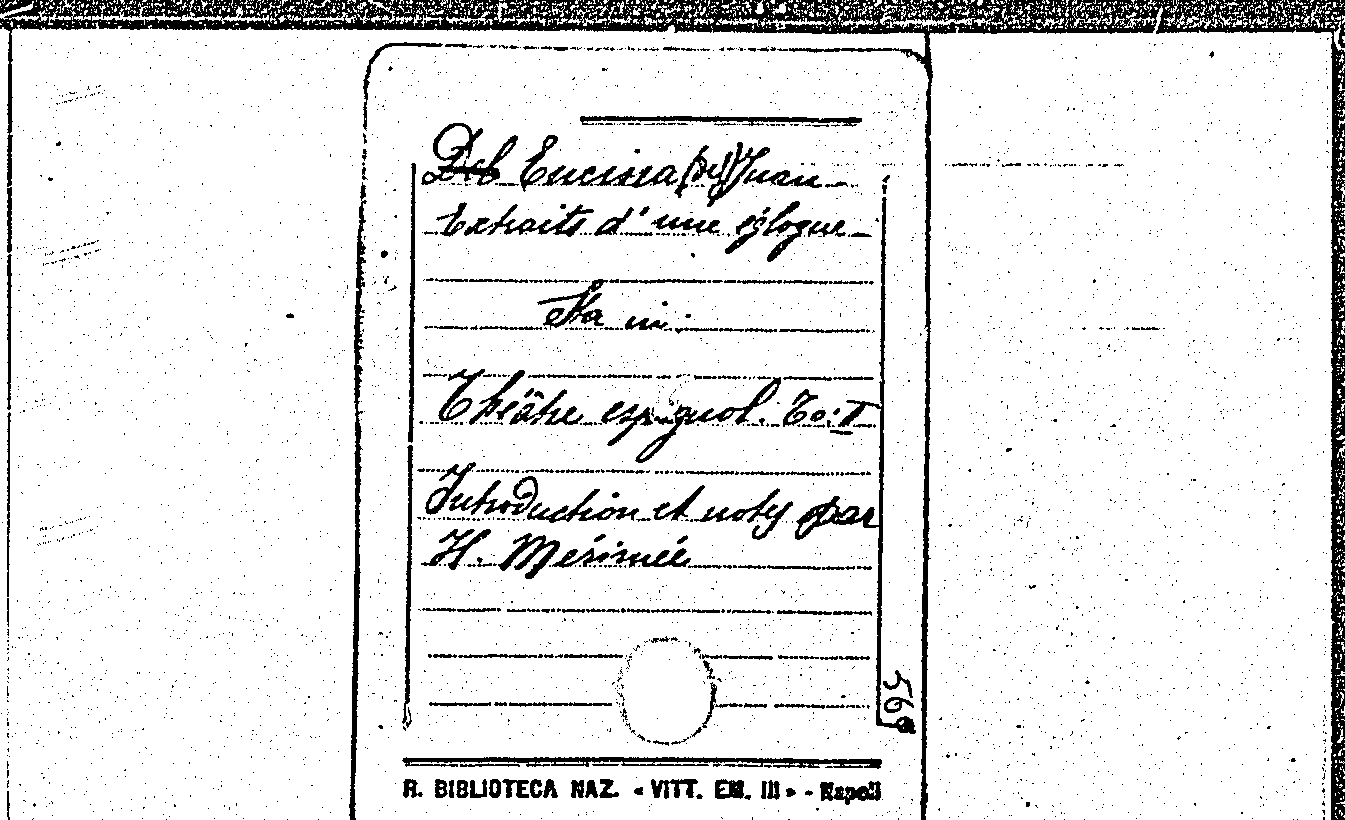 Del Encina (del) Juan
Extraits d'une églogue
Sta in:
Théâtre espagnol. To: I
Introduction et notes par
H. Mérimée
569
R. BIBLIOTECA NAZ. « VITT. EM. III » - Napoli